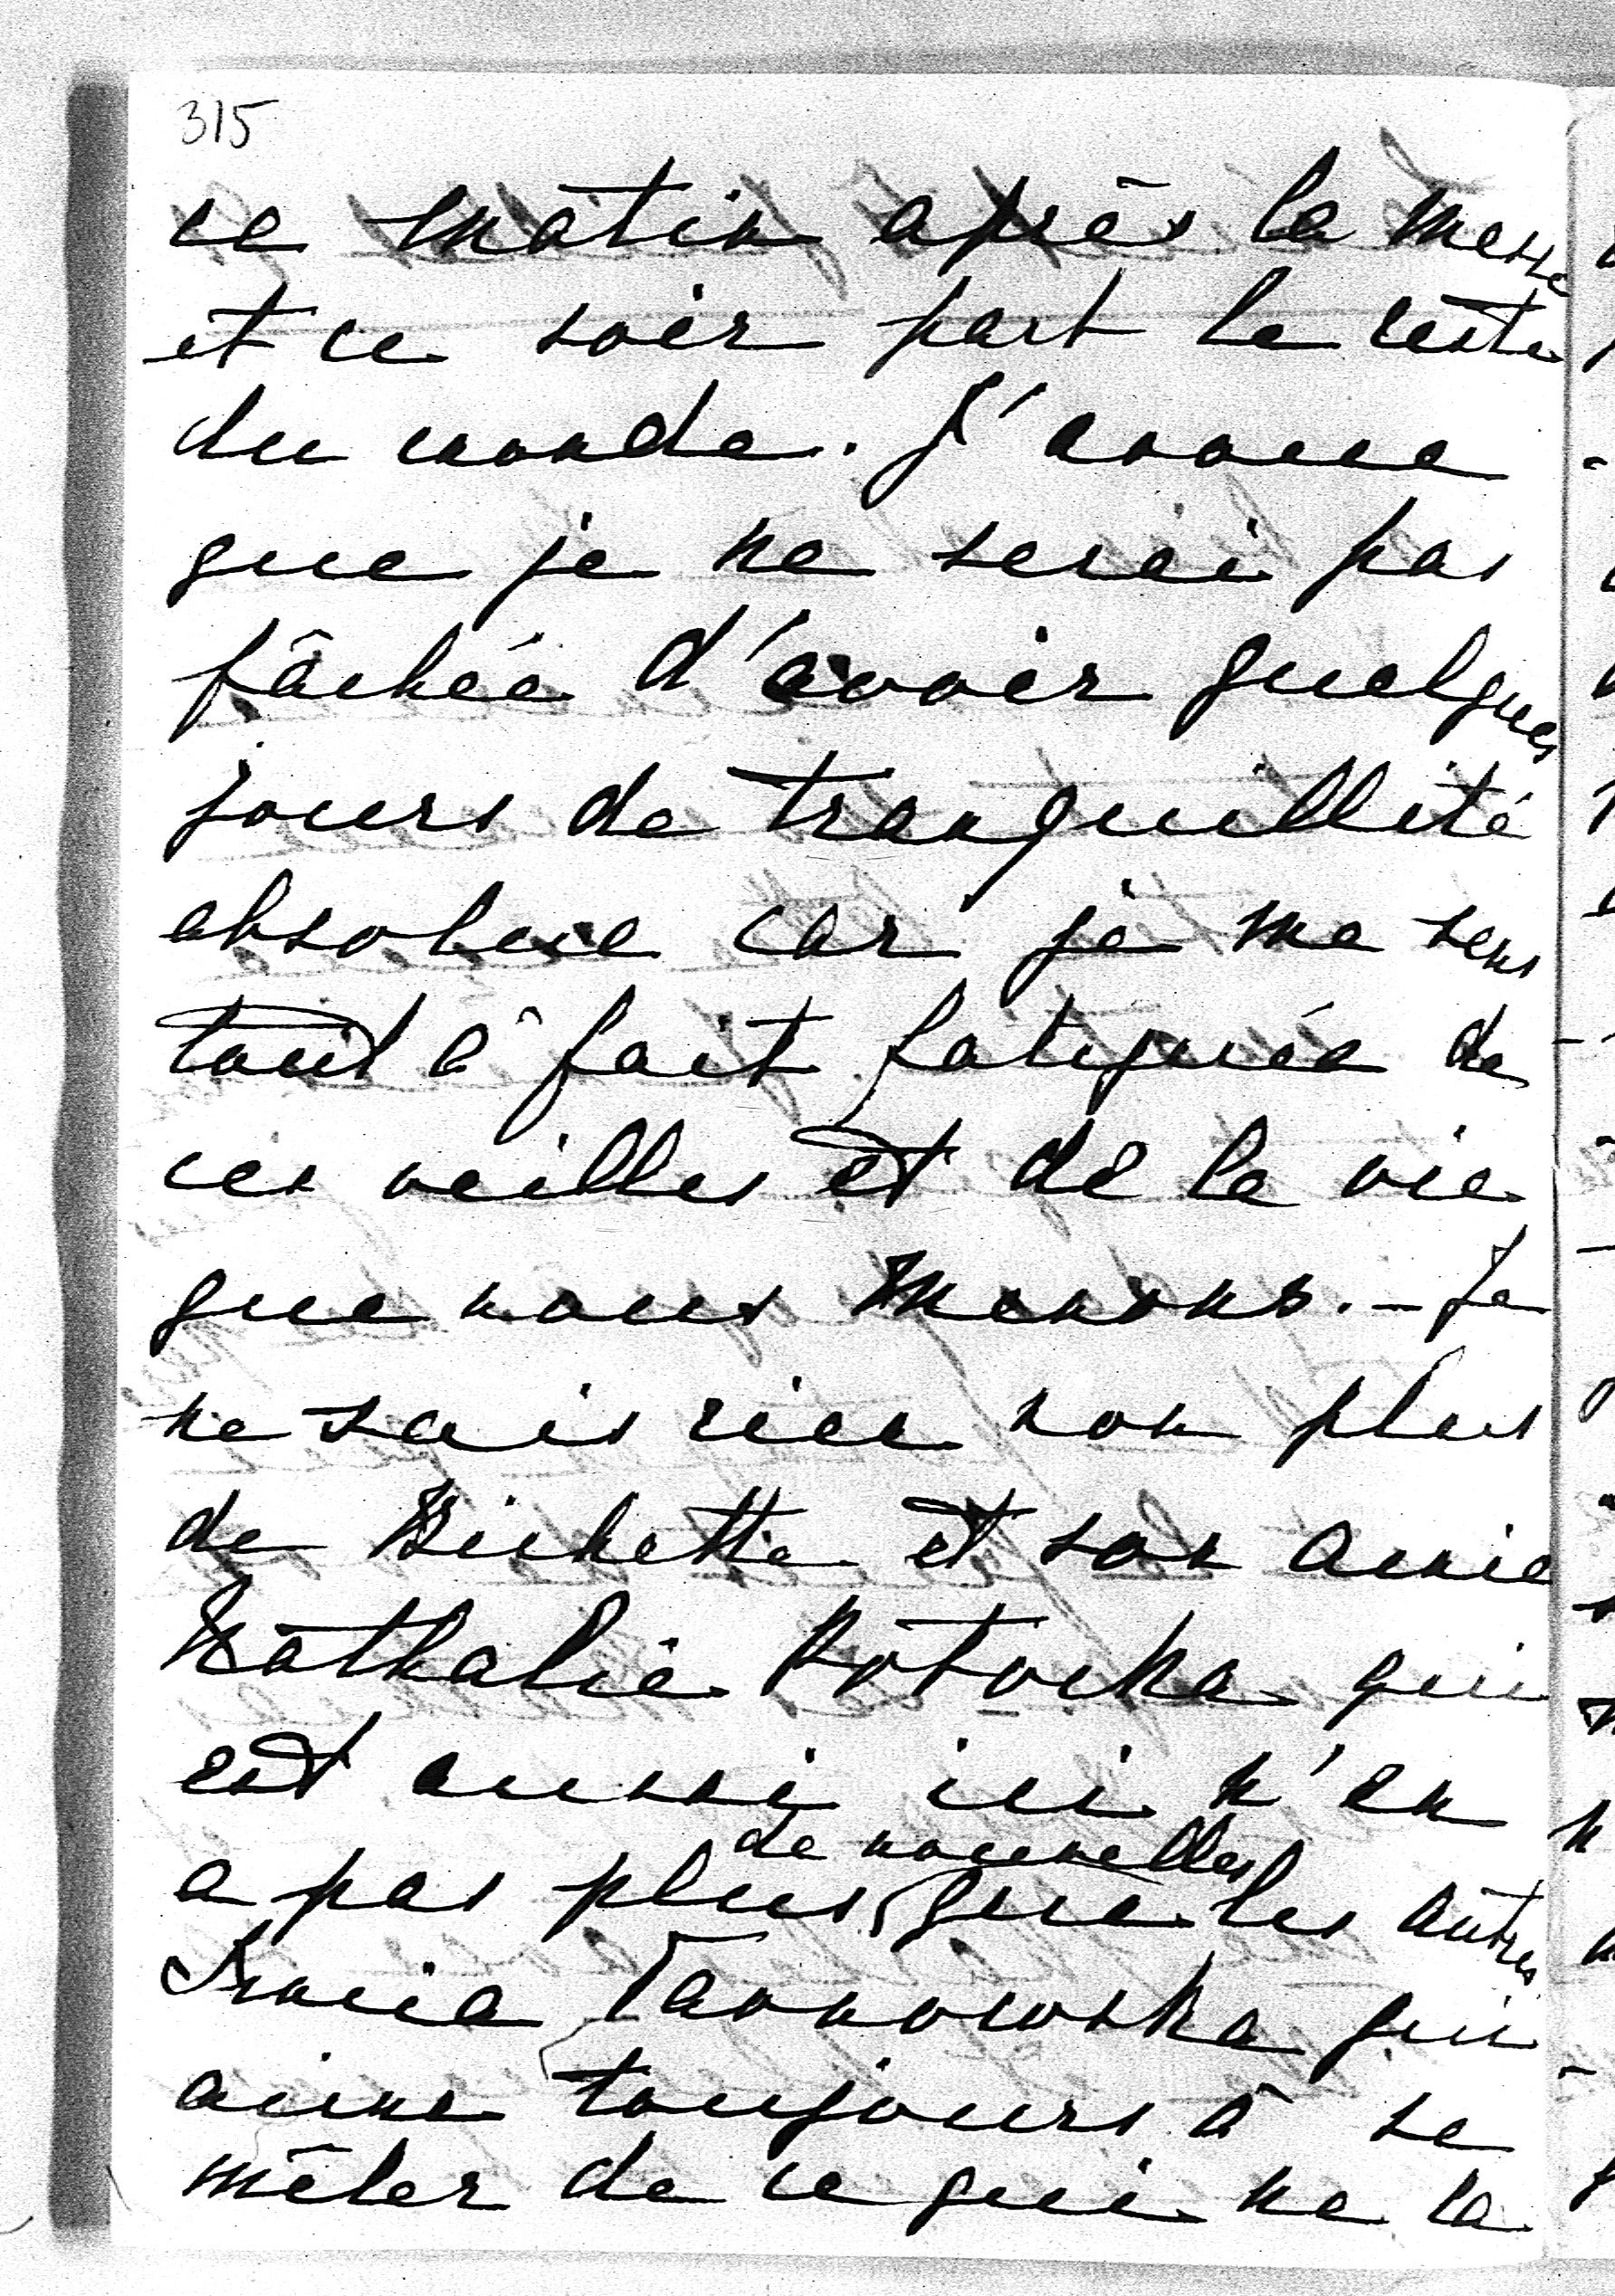 315
ce matin après la messe
et ce soir part le reste
du monde. J'avoue
que je ne serai pas
fâchée d'avoir quelques
jours de tranquillité
absolue car je me sens
tout à fait fatiguée de
ces veilles et de la vie
que nous menons. – Je
ne sais rien non plus
de Bichette et son amie
Nathalie Potocka qui
est aussi ici n'en
de nouvelles
a pas plus que les autres
Tarnowska qui
aime toujours à se
mêler de ce qui ne la